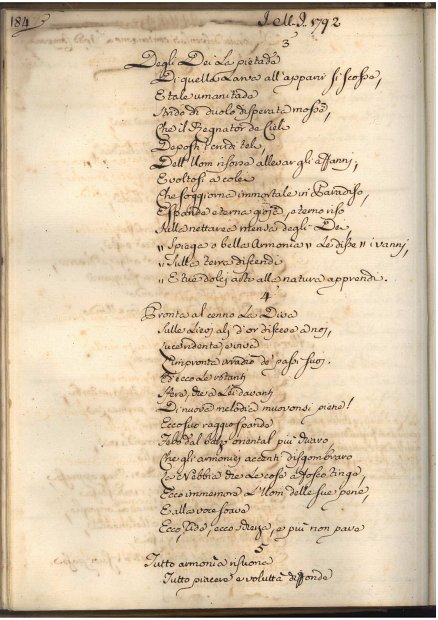 184
I. M. I. 1792
3
Degli Dei La pietade
Di quella Larva all'apparir si scosse,
E tale umanitade
Grido di duolo disperato mosse,
Che il Regnator de' Cieli
Deposti i crudi teli,
Dell'Uom risorse allevar gli affanni,
E voltosi a colei
Che soggiorna immortale in Paradiso,
Espande eterna gioja, eterno riso
Sulla nettarea mensa degli Dei
" Spiega o bella Armonia " Le disse " i vanni,
" Sulla terra discendi
" E tue dolci arti alla natura apprendi.
4
Pronta al cenno La Diva
Sulle Lievi ali d'or discese a noi,
lucendente, e viva
L'impronta de' passi suoi.
Ecco Le rotanti
Sfere, che a Lei davanti
Di nuova melodia muovonsi piene!
Ecco suo raggio spande
Febo dal balzo oriental più chiaro,
Che gli armonici accenti disgombraro
La Nebbia che Le cose a fosco tinge,
Ecco immemore L'Uom delle sue pene,
E alla voce soave
Ecco, ride, ecco scherza, e più non pave
5
Tutto armonìa risuona
Tutto piacere e voluttà diffonde